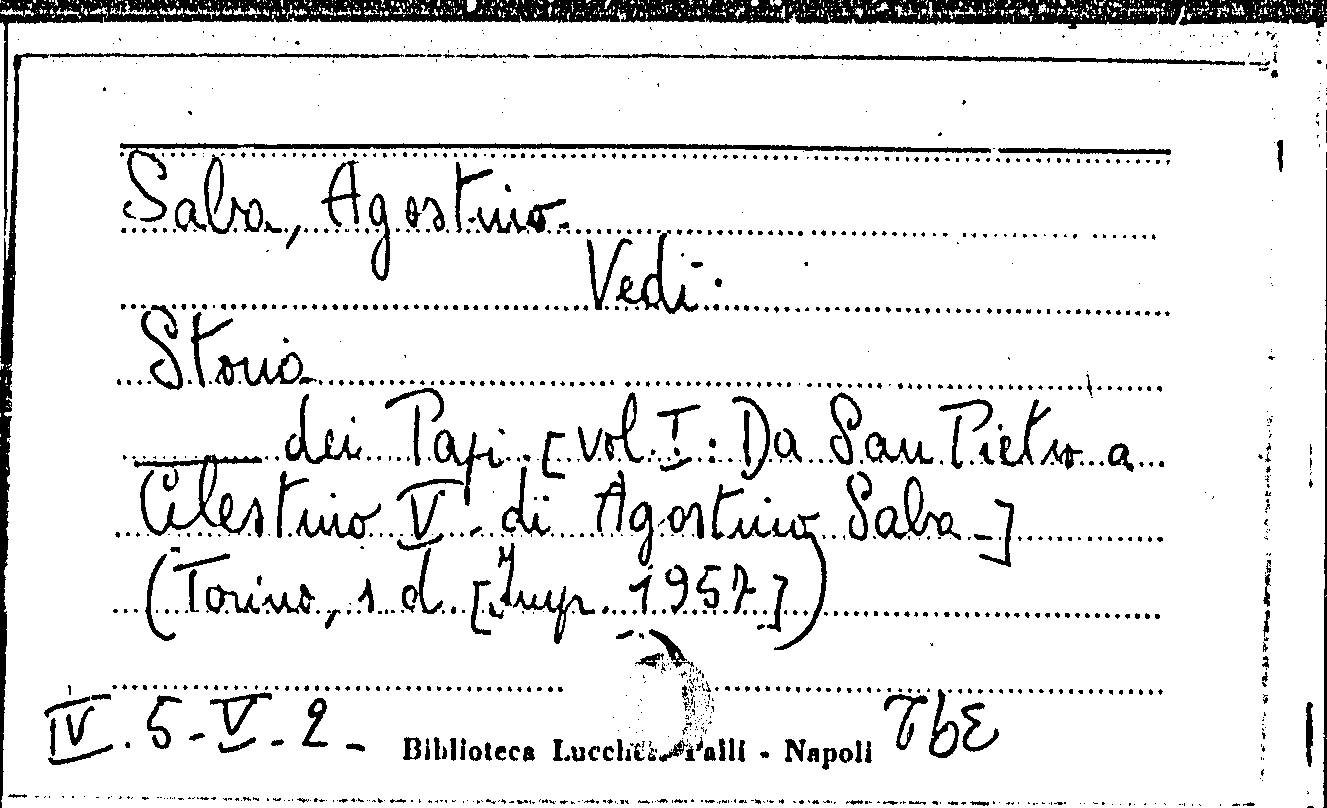 Saba, Agostino.
Vedi:
Storia
____ dei Papi. [vol. I: Da San Pietro a
Celestino V. di Agostino Saba.]
(Torino, s d. [Impr. 1957])
IV. 5-V-2-
Biblioteca Lucchesi Palli - Napoli